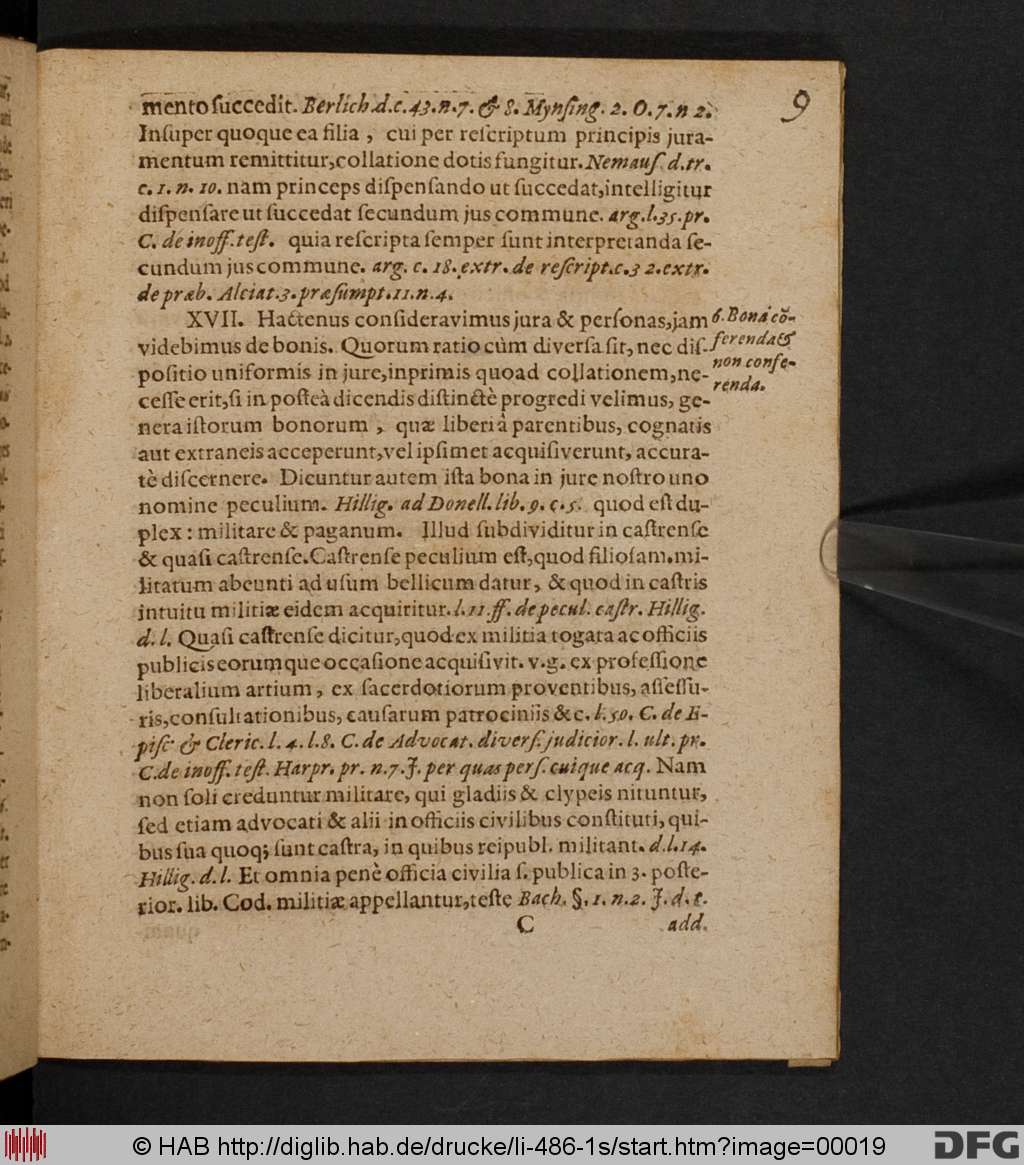 9
mento ſuccedit. Berlich.d.c.43.n.7. & 8. Mynſing. 2. O. 7. n 2.
Inſuper quoque ea filia, cui per reſcriptum principis jura-
mentum remittitur, collatione dotis fungitur. Nemauſ. d.tr.
c. 1. n. 10. nam princeps diſpenſando ut ſuccedat, intelligitur
diſpenſare ut ſuccedat ſecundum jus commune. arg.l.35.pr.
C. de inoff.teſt. quia reſcripta ſemper ſunt interpretanda ſe-
cundum jus commune. arg. c. 18. extr. de reſcript.c.32.extr.
de præb. Alciat.3.præſumpt.11.n.4.
XVII. Hactenus conſideravimus jura & perſonas, jam
videbimus de bonis. Quorum ratio cùm diverſa ſit, nec diſ-
poſitio uniformis in jure, inprimis quoad collationem, ne-
ceſſe erit, ſi in poſteà dicendis diſtinctè progredi velimus, ge-
nera iſtorum bonorum, quæ liberi à parentibus, cognatis
aut extraneis acceperunt, vel ipſimet acquiſiverunt, accura-
tè diſcernere. Dicuntur autem iſta bona in jure noſtro uno
nomine peculium. Hillig. ad Donell. lib. 9. c. 5. quod eſt du-
plex: militare & paganum. Illud ſubdividitur in caſtrenſe
& quaſi caſtrenſe. Caſtrenſe peculium eſt, quod filiofam. mi-
litatum abeunti ad uſum bellicum datur, & quod in caſtris
intuitu militiæ eidem acquiritur. l. 11. ff. de pecul. caſtr. Hillig.
d. l. Quaſi caſtrenſe dicitur, quod ex militia togata ac officiis
publicis eorumque occaſione acquiſivit. v.g. ex profeſſione
liberalium artium, ex ſacerdotiorum proventibus, aſſeſſu-
ris, conſultationibus, cauſarum patrociniis &c. l. 50. C. de E-
piſc & Cleric. l. 4. l. 8. C. de Advocat. diverſ. judicior. l. ult. pr.
C. de inoff. teſt. Harpr. pr. n. 7. J. per quas perſ. cuique acq. Nam
non ſoli creduntur militare, qui gladiis & clypeis nituntur,
ſed etiam advocati & alii in officiis civilibus conſtituti, qui-
bus ſua quoq; ſunt caſtra, in quibus reipubl. militant. d.l.14.
Hillig. d. l. Et omnia penè officia civilia ſ. publica in 3. poſte-
rior. lib. Cod. militiæ appellantur, teſte Bach. §. 1. n. 2. J. d. t.
C add.
6. Bona cõ-
ferenda &
non confe-
renda.
© HAB http://diglib.hab.de/drucke/li-486-1s/start.htm?image=00019
DFG